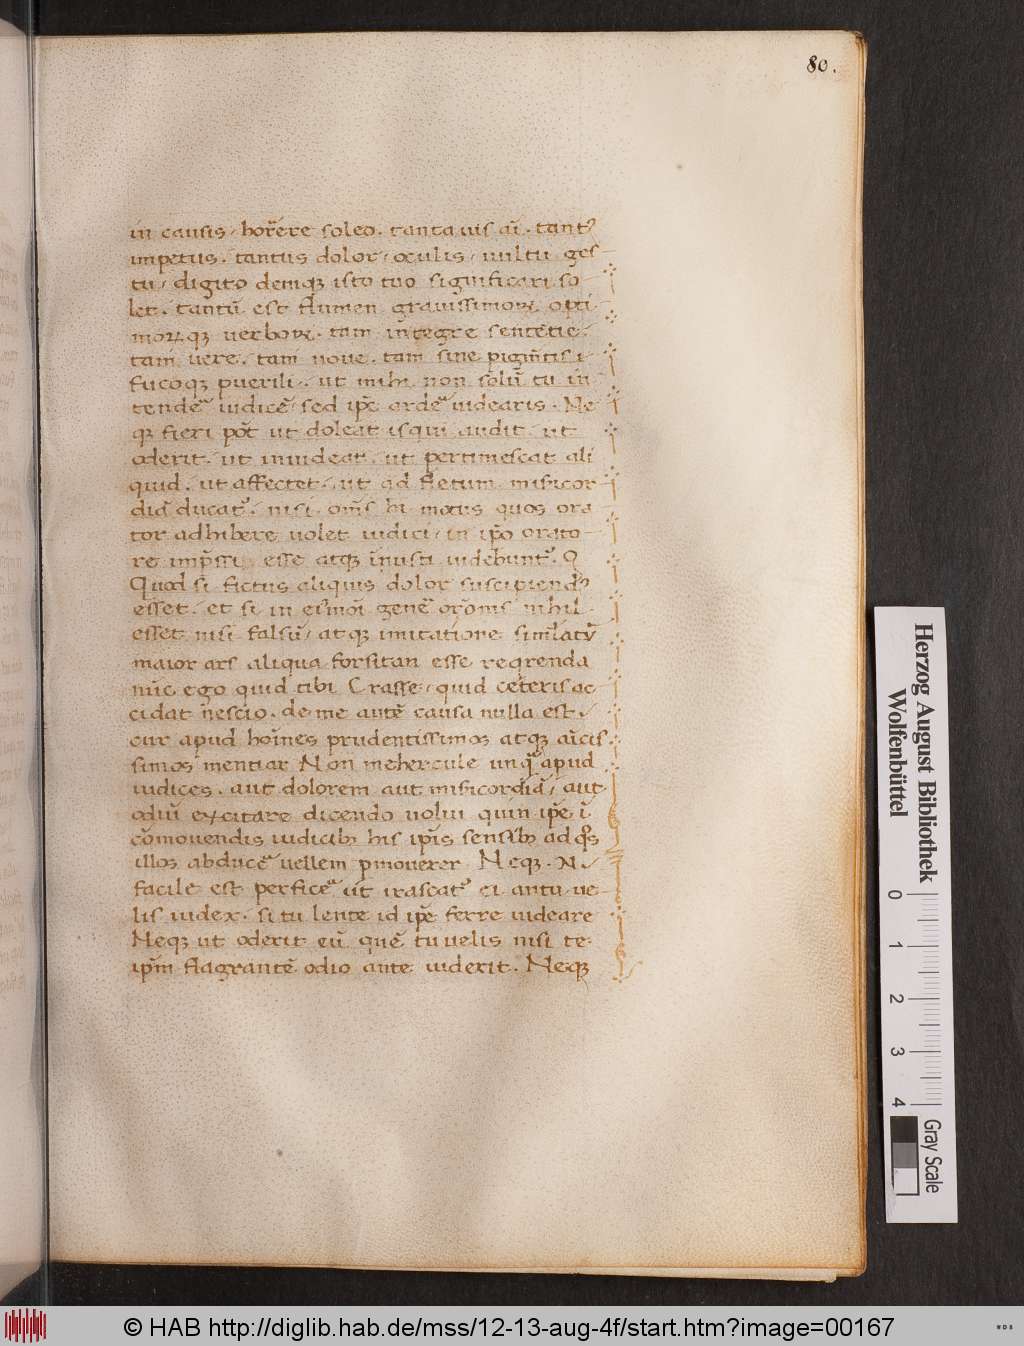 80.
in causis / horr̄ere soleo . tanta uis aı̄ . tant᷒
impetus . tantus dolor / oculis / uultu ges
tu / digito deniqꝫ isto tuo significari so
let . tantū est flumen grauissimoꝝ opti
moꝝqꝫ uerboꝝ . tam integre sentētie /
tam uere / tam noue . tam sine pigm̄tis /
fucoqꝫ puerili . ut mihi non solū tu in
tendē iudicē / sed ip̄e ardē uidearis . Ne
qꝫ fieri pōt ut doleat is qui audit . ut
oderit . ut inuideat . ut pertimescat ali
quid . ut affectet . ut ad fletum misicor
diā ducat᷒ . nisi om̄s hi motus quos ora
tor adhibere uolet iudici / in ip̄o orato
re imp̄ssi esse atqꝫ inusti uidebunt᷒ . Q
Quod si fictus aliquis dolor suscipiend᷒
esset . et si in eı̄moı̄ genē or̄onis nihil
esset nisi falsū / atqꝫ imitatione simlatū
maior ars aliqua forsitan esse reqrenda
nūc ego quid tibi Crasse / quid ceteris ac
cidat nescio . de me autē causa nulla est /
cur apud hoı̄nes prudentissimos atqꝫ aı̄cis
simos mentiar Non mehercule unqͣ apud
iudices . aut dolorem aut misicordiā / aut
odiū excitare dicendo uolui quin ip̄e ı̄
cōmouendis iudicibꝫ his ip̄is sensibꝫ ad qͦs
illos abducē uellem pmouerer Neqꝫ . N̄ .
facile est perficē ut irascat᷒ ei cui tu ue
lis iudex . si tu lente id ip̄e ferre uideare
Neqꝫ ut oderit eū quē tu uelis nisi te
ip̄m flagrantē odio ante uiderit . Neqꝫ
Herzog August Bibliothek
Wolfenbüttel
0 1 2 3 4
Gray Scale
© HAB http://diglib.hab.de/mss/12-13-aug-4f/start.htm?image=00167